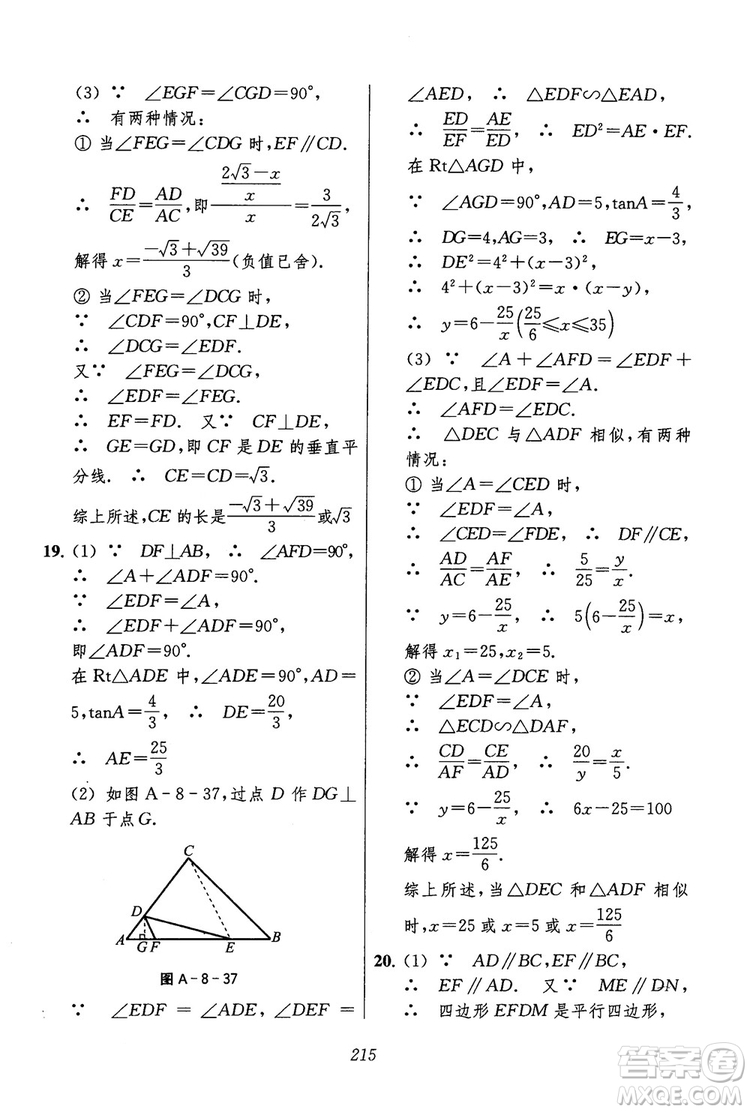 (3) ∵ ∠EGF=∠CGD=90°,
∴ 有两种情况:
① 当∠FEG=∠CDG 时,EF∥CD.
∴ FD/CE=AD/AC,即((2√3-x)/x)/x=3/(2√3),
解得 x=(-√3+√39)/3(负值已舍).
② 当∠FEG=∠DCG 时,
∵ ∠CDF=90°,CF⊥DE,
∴ ∠DCG=∠EDF.
又∵ ∠FEG=∠DCG,
∴ ∠EDF=∠FEG.
∴ EF=FD. 又∵ CF⊥DE,
∴ GE=GD,即 CF 是 DE 的垂直平
分线. ∴ CE=CD=√3.
综上所述,CE 的长是(-√3+√39)/3或√3
19. (1) ∵ DF⊥AB, ∴ ∠AFD=90°.
∴ ∠A+∠ADF=90°.
∵ ∠EDF=∠A,
∴ ∠EDF+∠ADF=90°,
即∠ADF=90°.
在 Rt△ADE 中,∠ADE=90°,AD=
5,tanA=4/3, ∴ DE=20/3,
∴ AE=25/3
(2) 如图 A-8-37,过点 D 作 DG⊥
AB 于点 G.
C
D
A
G F
E
B
图 A-8-37
∵ ∠EDF = ∠ADE, ∠DEF =
∠AED, ∴ △EDF∽△EAD,
∴ ED/EF=AE/ED, ∴ ED²=AE·EF.
在 Rt△AGD 中,
∵ ∠AGD=90°,AD=5,tanA=4/3,
∴ DG=4,AG=3, ∴ EG=x-3.
∴ DE²=4²+(x-3)².
∴ 4²+(x-3)²=x·(x-y),
∴ y=6-25/x(25/6≤x≤35)
(3) ∵ ∠A+∠AFD=∠EDF+
∠EDC,且∠EDF=∠A.
∴ ∠AFD=∠EDC.
∴ △DEC 与△ADF 相似,有两种
情况:
① 当∠A=∠CED 时,
∵ ∠EDF=∠A,
∴ ∠CED=∠FDE, ∴ DF∥CE.
∴ AD/AC=AF/AE, ∴ 5/25=y/x.
∵ y=6-25/x, ∴ 5(6-25/x)=x,
解得 x₁=25,x₂=5.
② 当∠A=∠DCE 时,
∵ ∠EDF=∠A,
∴ △ECD∽△DAF,
∴ CD/AF=CE/AD, ∴ 20/y=x/5.
∵ y=6-25/x, ∴ 6x-25=100
解得 x=125/6.
综上所述,当△DEC 和△ADF 相似
时,x=25 或 x=5 或 x=125/6
20. (1) ∵ AD∥BC,EF∥BC,
∴ EF∥AD. 又∵ ME∥DN,
∴ 四边形 EFDM 是平行四边形,
215
答案圈